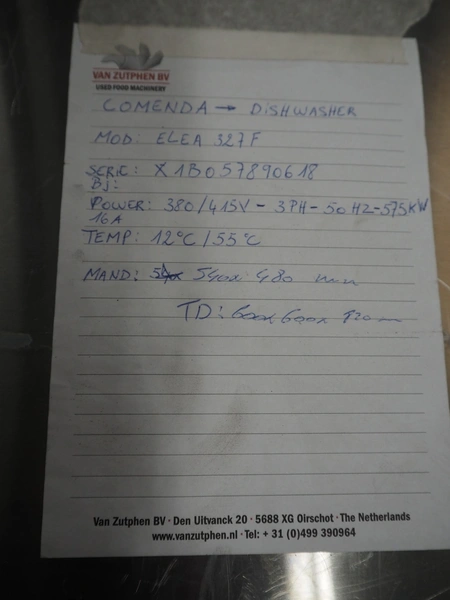 VAN ZUTPHEN BV
USED FOOD MACHINERY
COMENDA → DISHWASHER
MOD: ELEA 327F
SERIE: X1B057890618
BJ:
POWER: 380/415V - 3PH - 50HZ - 575KW
16A
TEMP: 12°C / 55°C
MAND: 540x 480 mm
TD: 600x600x 920 mm
Van Zutphen BV · Den Uitvanck 20 · 5688 XG Oirschot · The Netherlands
www.vanzutphen.nl · Tel: + 31 (0)499 390964